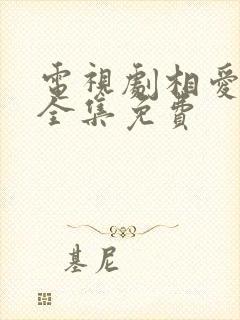 電視劇相愛
全集免費
基尼